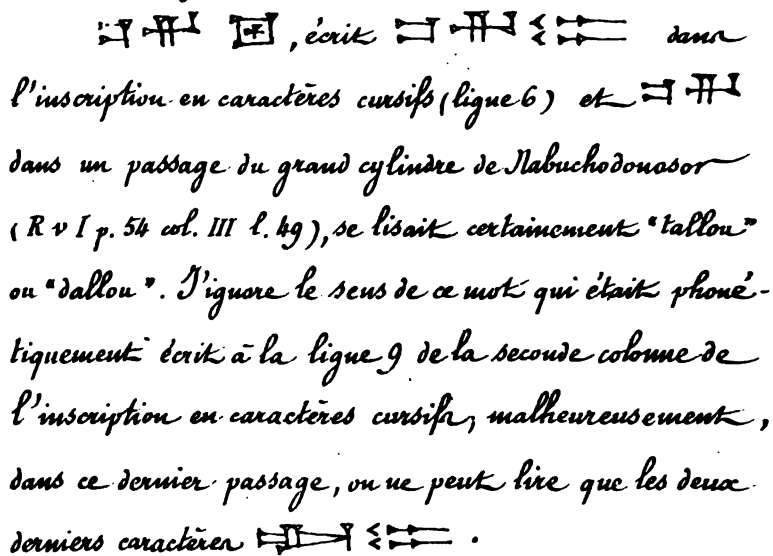 , écrit dans
l'inscription en caractères cursifs (ligne 6) et
dans un passage du grand cylindre de Nabuchodonosor
(R v I p. 54 col. III l. 49), se lisait certainement "tallou"
ou "dallou". J'ignore le sens de ce mot qui était phoné-
tiquement écrit à la ligne 9 de la seconde colonne de
l'inscription en caractères cursifs, malheureusement,
dans ce dernier passage, on ne peut lire que les deux
derniers caractères .